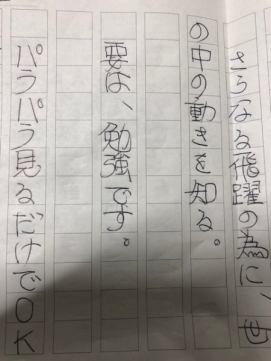 さらなる飛躍の為に、世
の中の動きを知る。
要は、勉強です。
パラパラ見るだけでOK